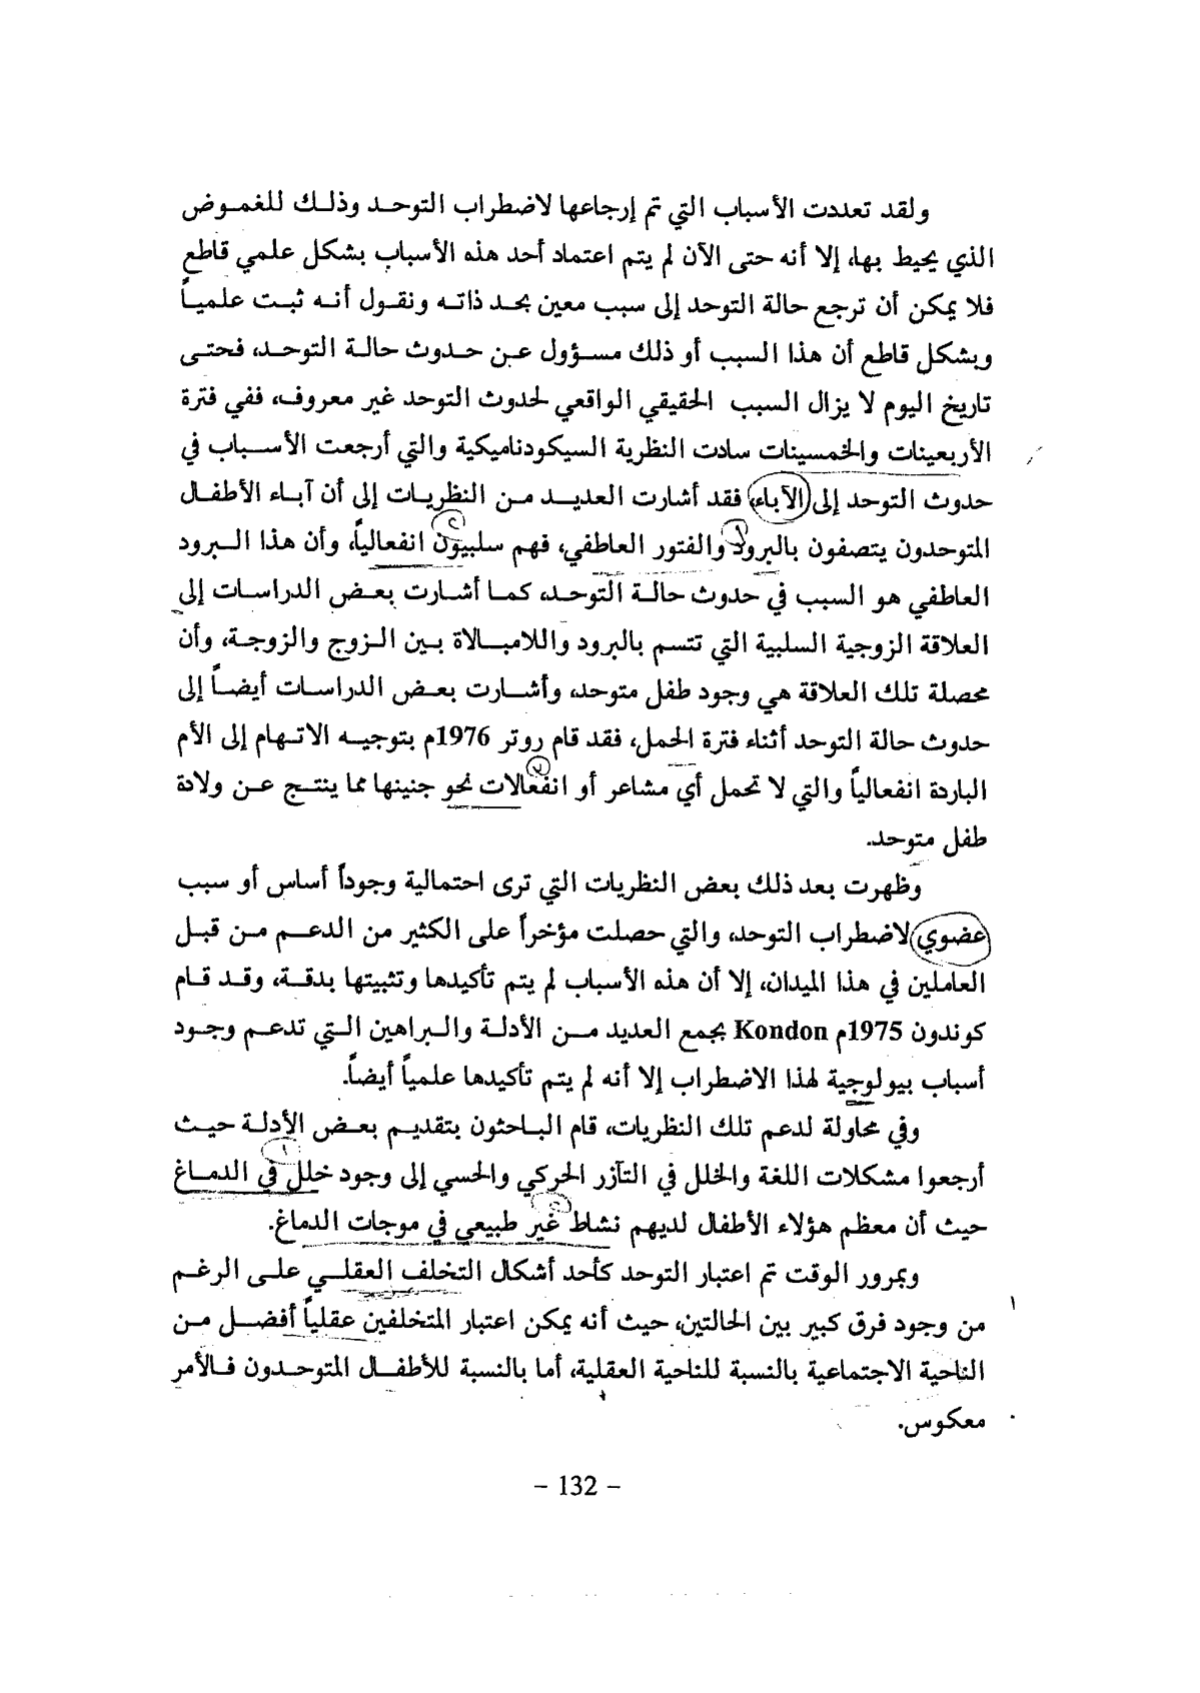 ولقد تعددت الأسباب التي تم إرجاعها لاضطراب التوحد وذلك للغموض
الذي يحيط بها، إلا أنه حتى الآن لم يتم اعتماد أحد هذه الأسباب بشكل علمي قاطع
فلا يمكن أن ترجع حالة التوحد إلى سبب معين بحد ذاته ونقول أنه ثبت علمياً
وبشكل قاطع أن هذا السبب أو ذلك مسؤول عن حدوث حالة التوحد، فحتى
تاريخ اليوم لا يزال السبب الحقيقي الواقعي لحدوث التوحد غير معروف، ففي فترة
الأربعينات والخمسينات سادت النظرية السيكودناميكية والتي أرجعت الأسباب في
حدوث التوحد إلى الآباء، فقد أشارت العديد من النظريات إلى أن آباء الأطفال
المتوحدون يتصفون بالبرود والفتور العاطفي، فهم سلبيون انفعالياً، وأن هذا البرود
العاطفي هو السبب في حدوث حالة التوحد، كما أشارت بعض الدراسات إلى
العلاقة الزوجية السلبية التي تتسم بالبرود واللامبالاة بين الزوج والزوجة، وأن
محصلة تلك العلاقة هي وجود طفل متوحد، وأشارت بعض الدراسات أيضاً إلى
حدوث حالة التوحد أثناء فترة الحمل، فقد قام روتر 1976م بتوجيه الاتهام إلى الأم
الباردة انفعالياً والتي لا تحمل أي مشاعر أو انفعالات نحو جنينها مما ينتج عن ولادة
طفل متوحد.
وظهرت بعد ذلك بعض النظريات التي ترى احتمالية وجوداً أساس أو سبب
عضوي لاضطراب التوحد، والتي حصلت مؤخراً على الكثير من الدعم من قبل
العاملين في هذا الميدان، إلا أن هذه الأسباب لم يتم تأكيدها وتثبيتها بدقة، وقد قام
كوندون 1975م Kondon بجمع العديد من الأدلة والبراهين التي تدعم وجود
أسباب بيولوجية لهذا الاضطراب إلا أنه لم يتم تأكيدها علمياً أيضاً.
وفي محاولة لدعم تلك النظريات، قام الباحثون بتقديم بعض الأدلة حيث
أرجعوا مشكلات اللغة والخلل في التآزر الحركي والحسي إلى وجود خلل في الدماغ
حيث أن معظم هؤلاء الأطفال لديهم نشاط غير طبيعي في موجات الدماغ.
وبمرور الوقت تم اعتبار التوحد كأحد أشكال التخلف العقلي على الرغم
من وجود فرق كبير بين الحالتين، حيث أنه يمكن اعتبار المتخلفين عقلياً أفضل من
الناحية الاجتماعية بالنسبة للناحية العقلية، أما بالنسبة للأطفال المتوحدون فالأمر
معكوس.
- 132 -